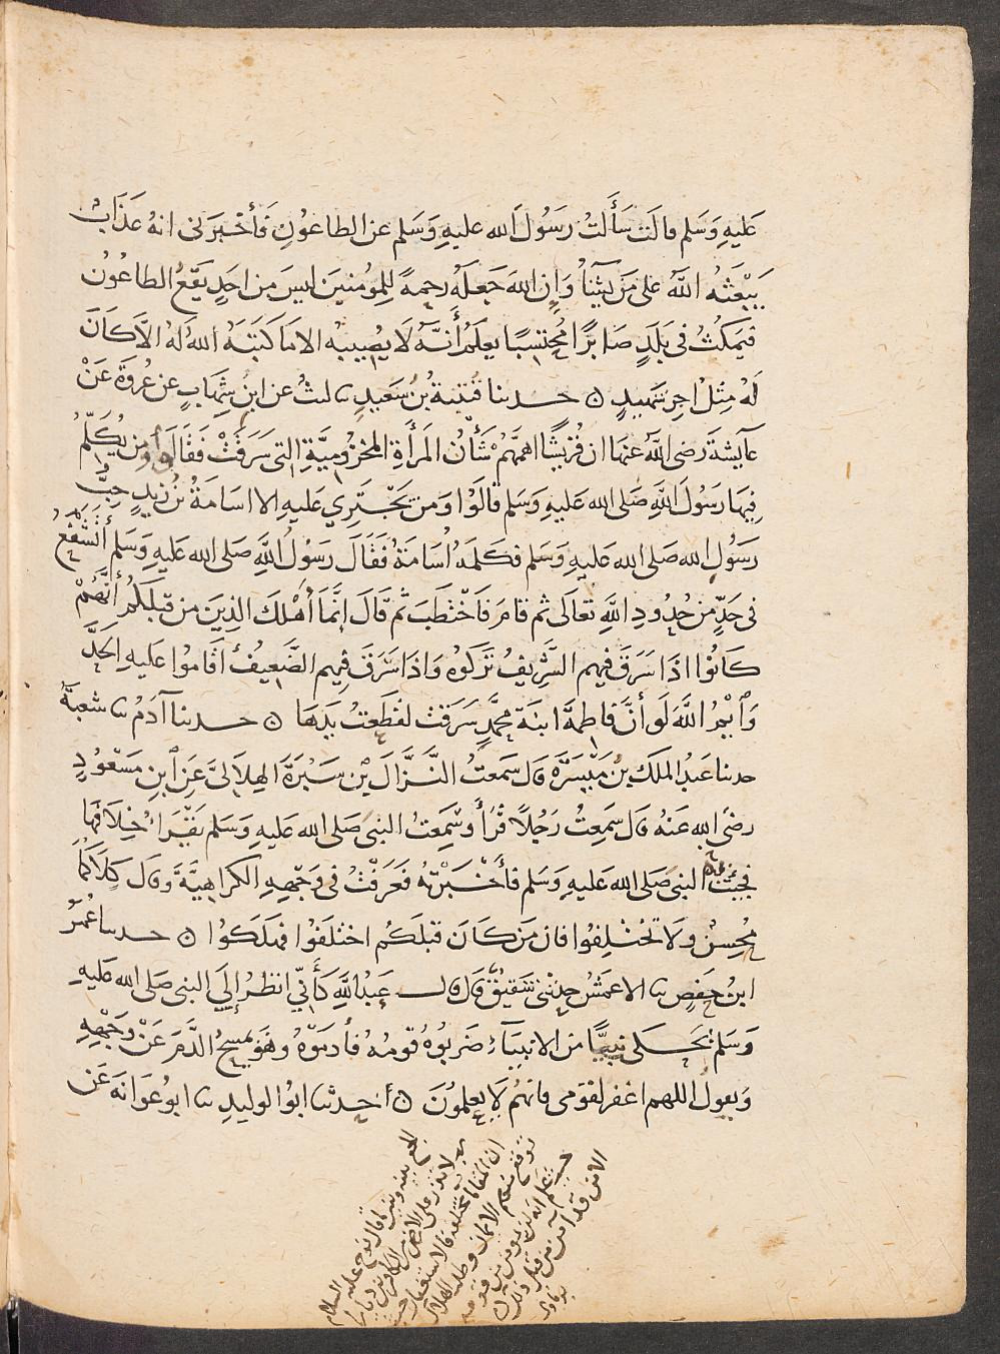 عَلَيهِ وَسَلم قالَت سَأَلتُ رسَوُل الله عليهِ وَسَلم عن الطاعوُنِ فَأخبرَنى انهُ عَذَابٌ
يَبْعَثهُ اللهُ على مَن يشآُ وَاِن اللهَ جَعَلَهُ رحمةً لِلمُومنينَ ليسَ من احَدٍ يَقَعُ الطاعُونُ
فيَمكثُ فى بَلَدِهِ صَابرًا مُحتسِبًا يعلَمُ أَنَّهُ لَا يُصِيبهُ الا ما كَتَبَهُ اللهُ لهُ الّا كَانَ
لهُ مِثْل اجرِ شَهيدٍ ن حدىنا قتيبةُ بنُ سَعيدٍ ىا ليثٌ عن ابنِ شِهَابٍ عن عُروَةَ عَنْ
عآيشةَ رضى اللهُ عنهَا ان قُرَيشًا اهمَّهُمْ شَأْنُ المَرأَةِ المخزُوميَّةِ التى سَرَقَتْ فَقَالوُا ومن يُكَلّمُ
فِيهَا رسَوُلَ اللهِ صَلى الله عَليهِ وَسَلم قالوُا وَمن يَجْتَرِي عَليهِ الا اسَامَةُ بْنُ زيدٍ حِبُّ
رَسوُلِ الله صَلى الله عَليهِ وَسَلم فكلمَهُ اسَامَةُ فقَالَ رَسوُلُ اللهِ صَلى الله عَليهِ وَسَلم أتشْفَعُ
فى حَدٍّ من حُدُودِ اللهِ تعَالَى ثم قامَ فَاخْتَطبَ ثم قَالَ اِنَّمَا أَهْلكَ الذِينَ من قبلَكُم أَنَّهُمْ
كَانُوْا اذَا سَرَقَ فيهِم الشَّرِيفُ تَرَكوُهُ وَاذَا سَرَقَ فِيهم الضَّعيفُ أَقَامُوا عَليهِ الحَدَّ
وَأيْمُ اللهِ لَو أَنَّ فاطِمَةَ ابنَةَ محمَّدٍ سَرَقت لقَطَعتُ يَدَهَا ن حدىنا آدَمُ ىا شعبَةُ
حدىنا عَبدُ الملَك بنُ مَيْسَرَةَ قال سَمعتُ النَّزَّالَ بْنَ سَبْرَةَ الهِلَاليَّ عَنِ ابنِ مَسْعُودٍ
رضىَ الله عَنهُ قال سَمِعتُ رَجُلًا قرَأَ وسَمعتُ النبى صَلى الله عَليهِ وَسَلم يَقْرَأُ خِلَافَهَا
فجيتُ به النبى صَلى الله عَليهِ وَسَلم فأخْبَرْتهُ فعَرَفتُ فى وَجههِ الكَراهيَّةَ وقال كِلَاكُمَا
مُحسِنٌ ولَا تَختلِفوُا فان مَن كَانَ قبلَكُم اختلَفوُا فهلَكوُا ن حدىنا عُمَرُ
ابنُ حَفصٍ ىا الاعمَشُ حدثنى شَقيقٌ قال قال عَبدُ اللهِ كَأَنّي انظُرُ اِلَي النبى صَلى الله عليهِ
وَسَلم يَحكى نَبيًّا من الانبيَآءِ ضَربَوُهُ قوَمُهُ فأدمَوْهُ وهُوَ يمسَحُ الدَّمَ عَنْ وَجْهِهِ
وَيقوُل اللهم اغفر لقوَمى فانهُم لَا يعلموُنَ ن حدثنا ابوُ الوليدِ ىا ابوُ عَوَانهَ عَن